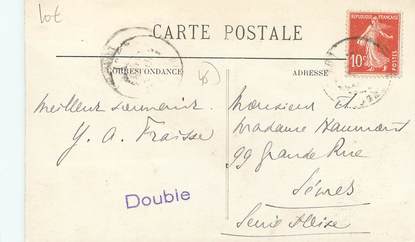 lot
CARTE POSTALE
RÉPUBLIQUE FRANÇAISE
10c
POSTES
CORRESPONDANCE
ADRESSE
meilleur souvenir
Y. A. Fraisse
Monsieur et
Madame Haumont
99 Grande Rue
Sèvres
Seine et Oise
Double